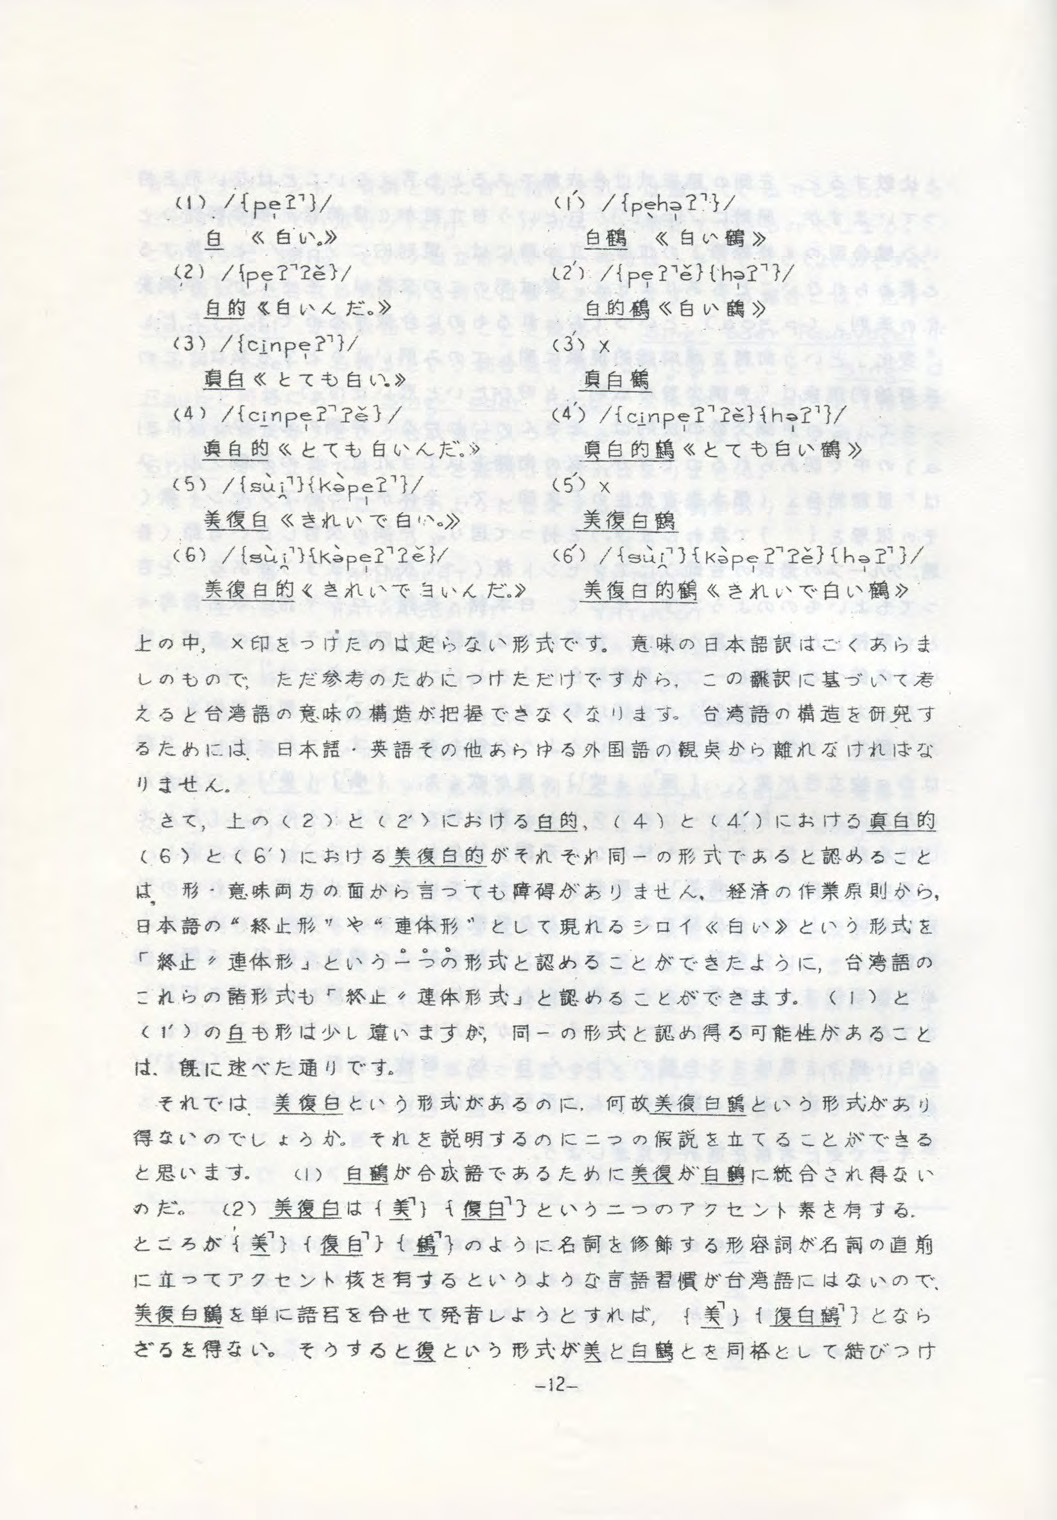 (1) /{peʔ˥}/ (1′) /{pehəʔ˥}/
白 《白い。》 白鶴 《白い鶴》
(2) /{peʔ˥ʔĕ}/ (2′) /{peʔ˥ĕ}{həʔ˥}/
白的《白いんだ。》 白的鶴《白い鶴》
(3) /{cinpeʔ˥}/ (3′) ×
真白《とても白い。》 真白鶴
(4) /{cinpeʔ˥ʔĕ}/ (4′) /{cinpeʔ˥ʔĕ}{həʔ˥}/
真白的《とても白いんだ。》 真白的鶴《とても白い鶴》
(5) /{sùi˥}{kàpeʔ˥}/ (5′) ×
美復白《きれいで白い。》 美復白鶴
(6) /{sùi˥}{kàpeʔ˥ʔĕ}/ (6′) /{sùi˥}{kàpeʔ˥ʔĕ}{həʔ˥}/
美復白的《きれいでヨいんだ。》 美復白的鶴《きれいで白い鶴》
上の中,×印をつけたのは起らない形式です。意味の日本語訳はごくあらま
しのもので,ただ参考のためにつけただけですから,この飜訳に基づいて考
えると台湾語の意味の構造が把握できなくなります。台湾語の構造を研究す
るためには,日本語・英語その他あらゆる外国語の観点から離れなければな
りません。
さて,上の(2)と(2′)における白的,(4)と(4′)における真白的
(6)と(6′)における美復白的がそれぞれ同一の形式であると認めること
は,形・意味両方の面から言っても障碍がありません,経済の作業原則から,
日本語の“終止形”や“連体形”として現れるシロイ《白い》という形式を
「終止〃連体形」という一つの形式と認めることができたように,台湾語の
これらの諸形式も「終止〃連体形式」と認めることができます。(1)と
(1′)の白も形は少し違いますが,同一の形式と認め得る可能性があること
は,既に述べた通りです。
それでは,美復白という形式があるのに,何故美復白鶴という形式があり
得ないのでしょうか。それを説明するのに二つの仮説を立てることができる
と思います。(1) 白鶴が合成語であるために美復が白鶴に統合され得ない
のだ。(2) 美復白は{美˥}{復白˥}という二つのアクセント素を有する.
ところが{美˥}{復白˥}{鶴˥}のように名詞を修飾する形容詞が名詞の直前
に立ってアクセント核を有するというような言語習慣が台湾語にはないので,
美復白鶴を単に語呂を合せて発音しようとすれば,{美˥}{復白鶴˥}となら
ざるを得ない。そうすると復という形式が美と白鶴とを同格として結びつけ
–12–